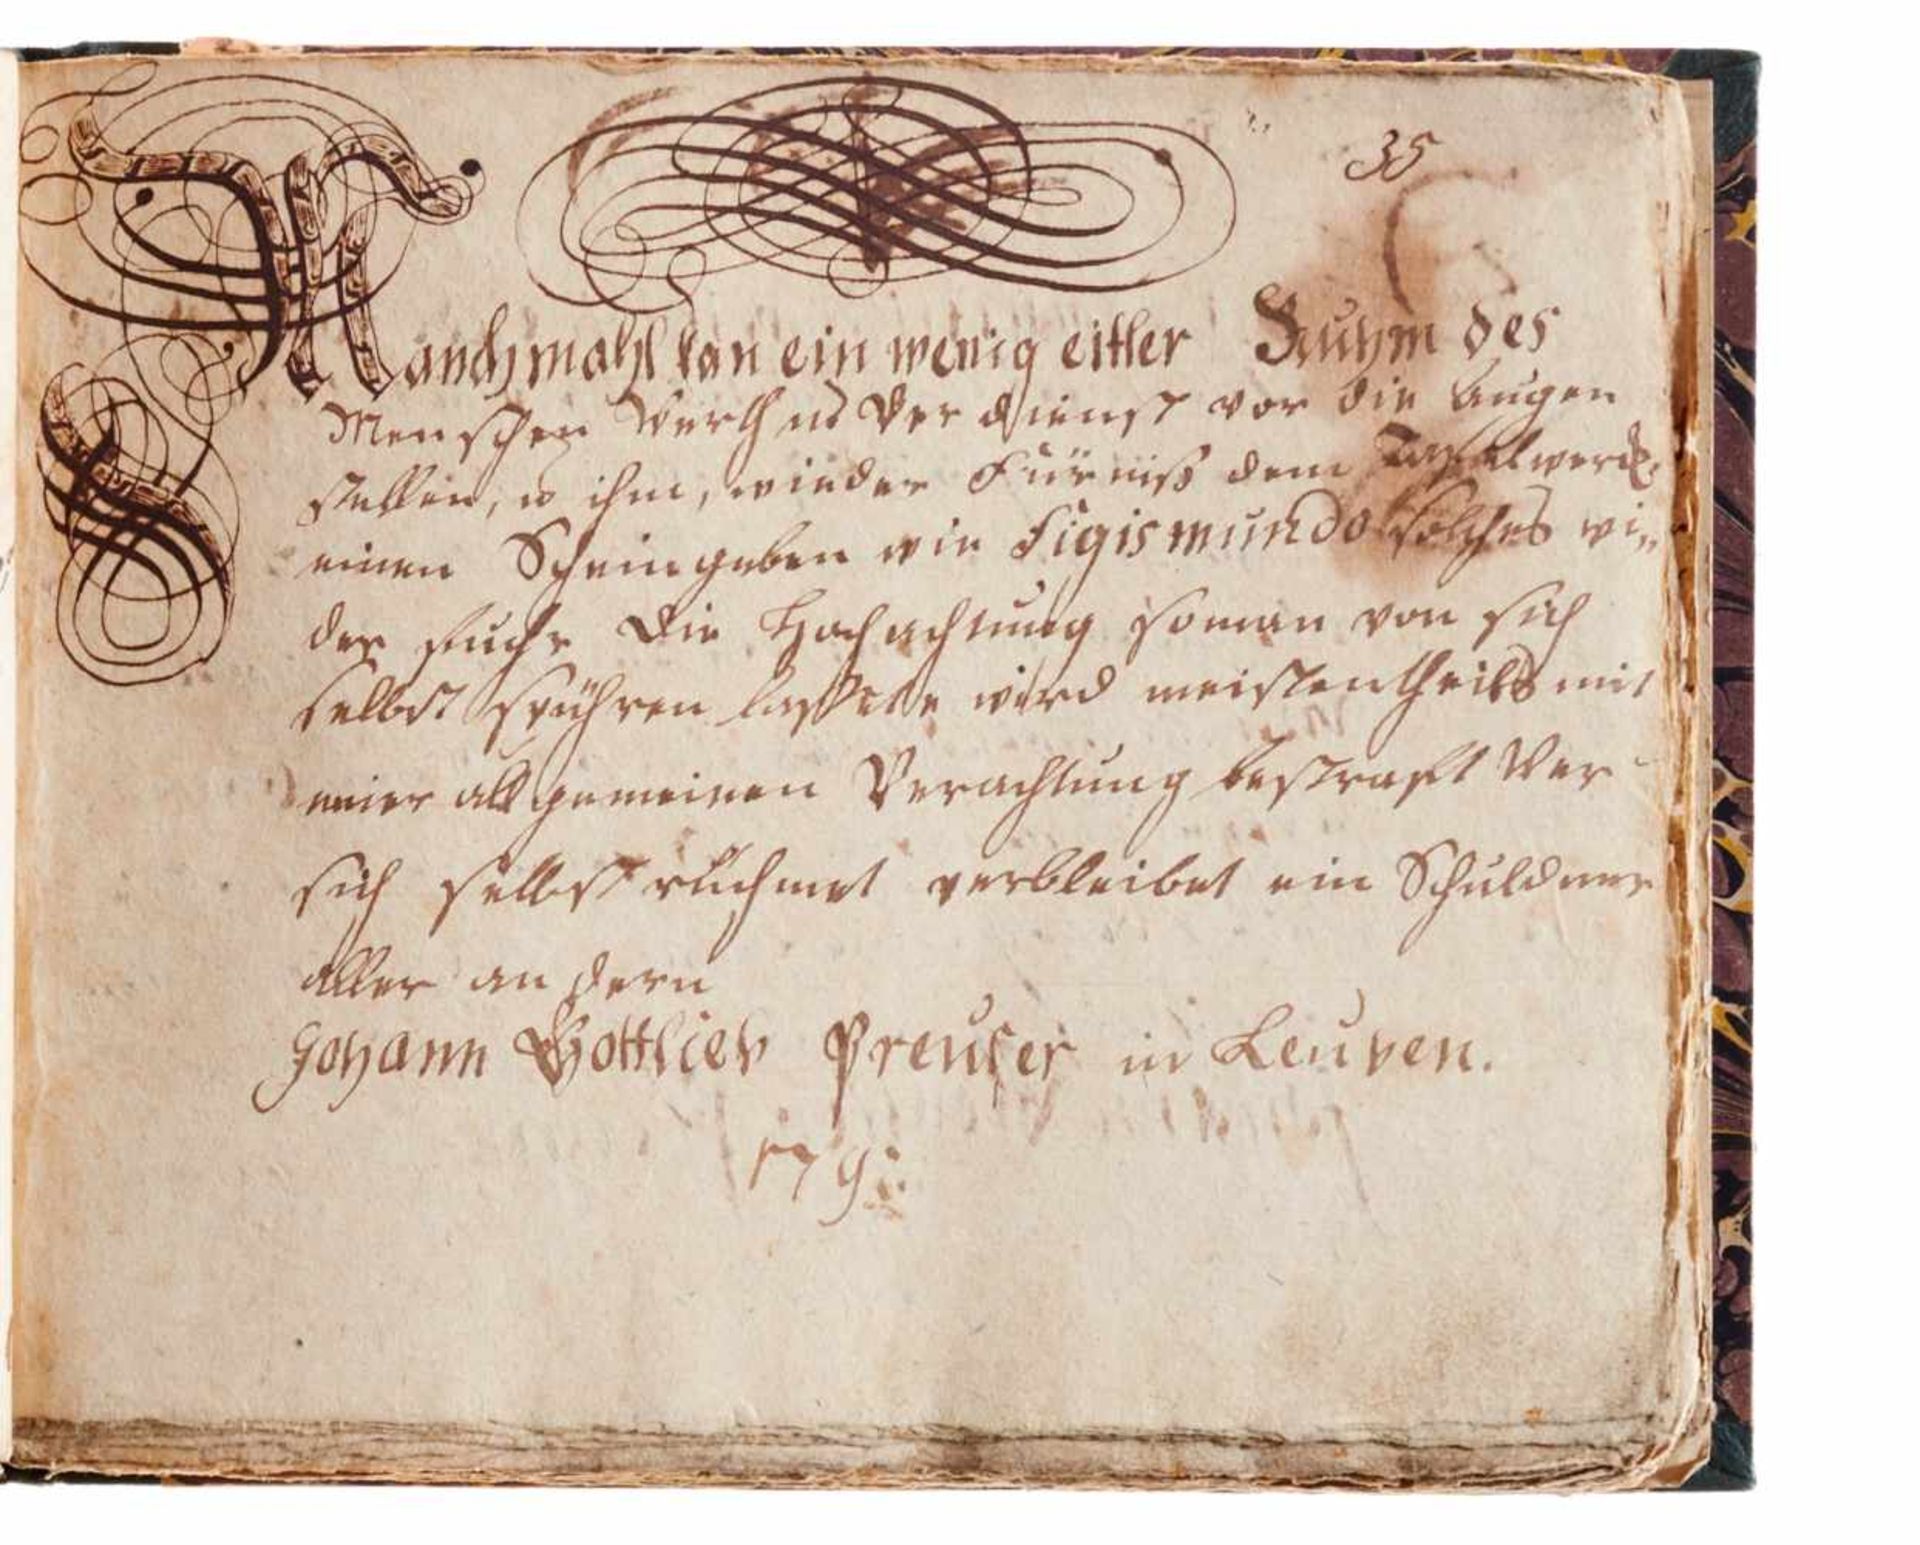 35
Manchmahl kan ein wenig eitler Ruhm des
Menschen Werth und Verdienst vor die Augen
stellen, u ihm, wie der Fürniß dem Tafelwerck,
einen Schein geben wie Sigismundo solches wi„
der fuhr Die Hochachtung so man von sich
selbst spühren lassete wird meistentheils mit
einer allgemeinen Verachtung bestraft Wer
sich selbst rühmet verbleibet ein Schuldner
aller andern
Johann Gottlieb Preuser in Leuben.
179